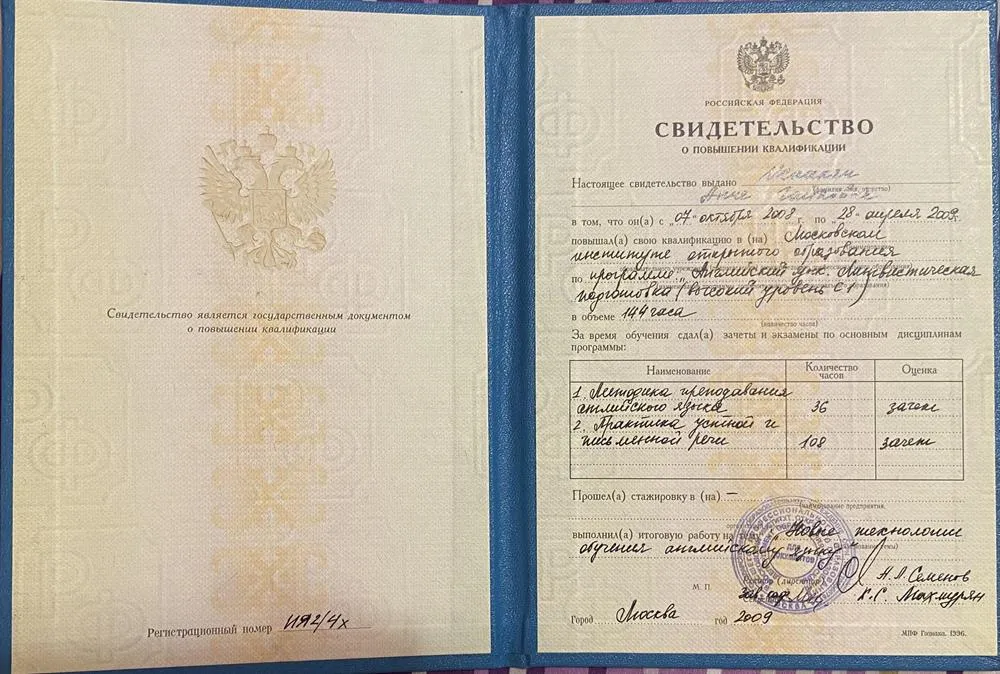 Свидетельство является государственным документом
о повышении квалификации
Регистрационный номер ИЯ2/4х
РОССИЙСКАЯ ФЕДЕРАЦИЯ
СВИДЕТЕЛЬСТВО
О ПОВЫШЕНИИ КВАЛИФИКАЦИИ
Настоящее свидетельство выдано
Анне
в том, что он(а) с „07" октября 2008 г. по „28" апреля 2009г.
повышал(а) свою квалификацию в (на) Московском
институте открытого образования
по программе „Английский язк. Лингвистическая
подготовка (высокий уровень C1)
в объеме 144 часа
(количество часов)
За время обучения сдал(а) зачеты и экзамены по основным дисциплинам
программы:
Наименование Количество часов Оценка
1. Методика преподавания
английского языка 36 зачет
2. Практика устной и
письменной речи 108 зачет
Прошел(а) стажировку в (на) —
(наименование предприятия,
выполнил(а) итоговую работу на „Новые технологии
обучения английскому языку"
М. П.
Ректор (директор) А.Л. Семенов
К.С. Махмурян
Город Москва год 2009
МПФ Гознака. 1996.